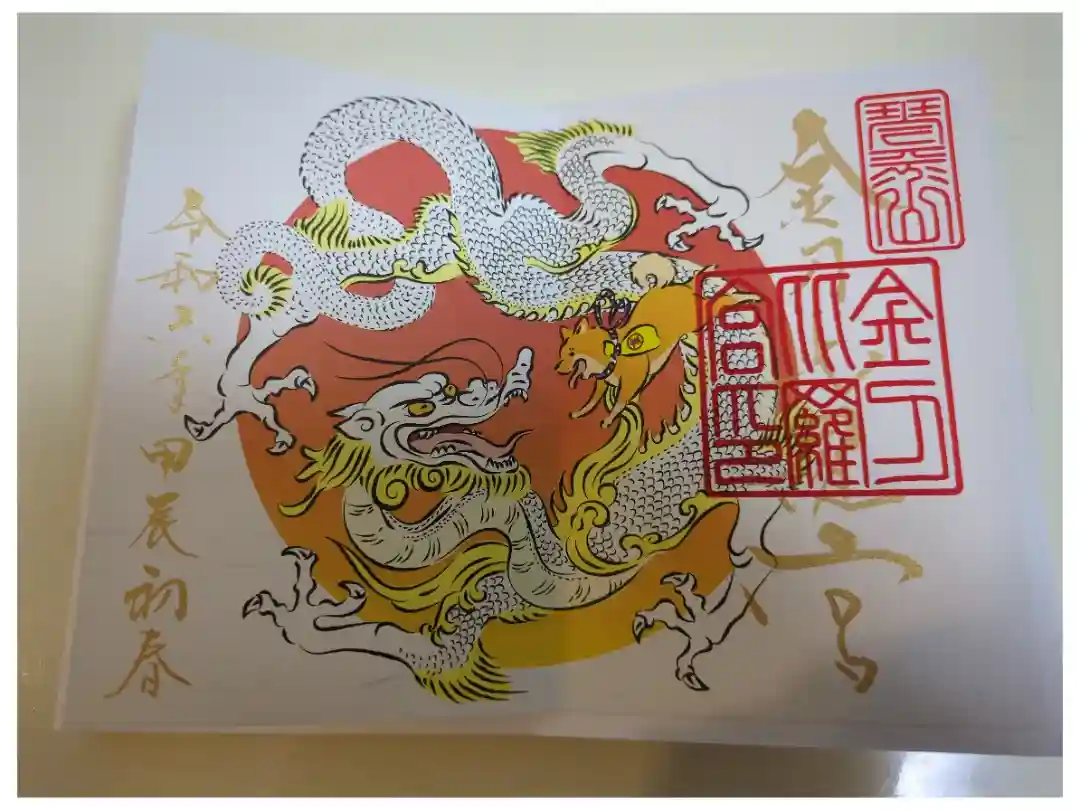 金刀比羅宮
金刀
比羅
宮印
令和六年甲辰初春